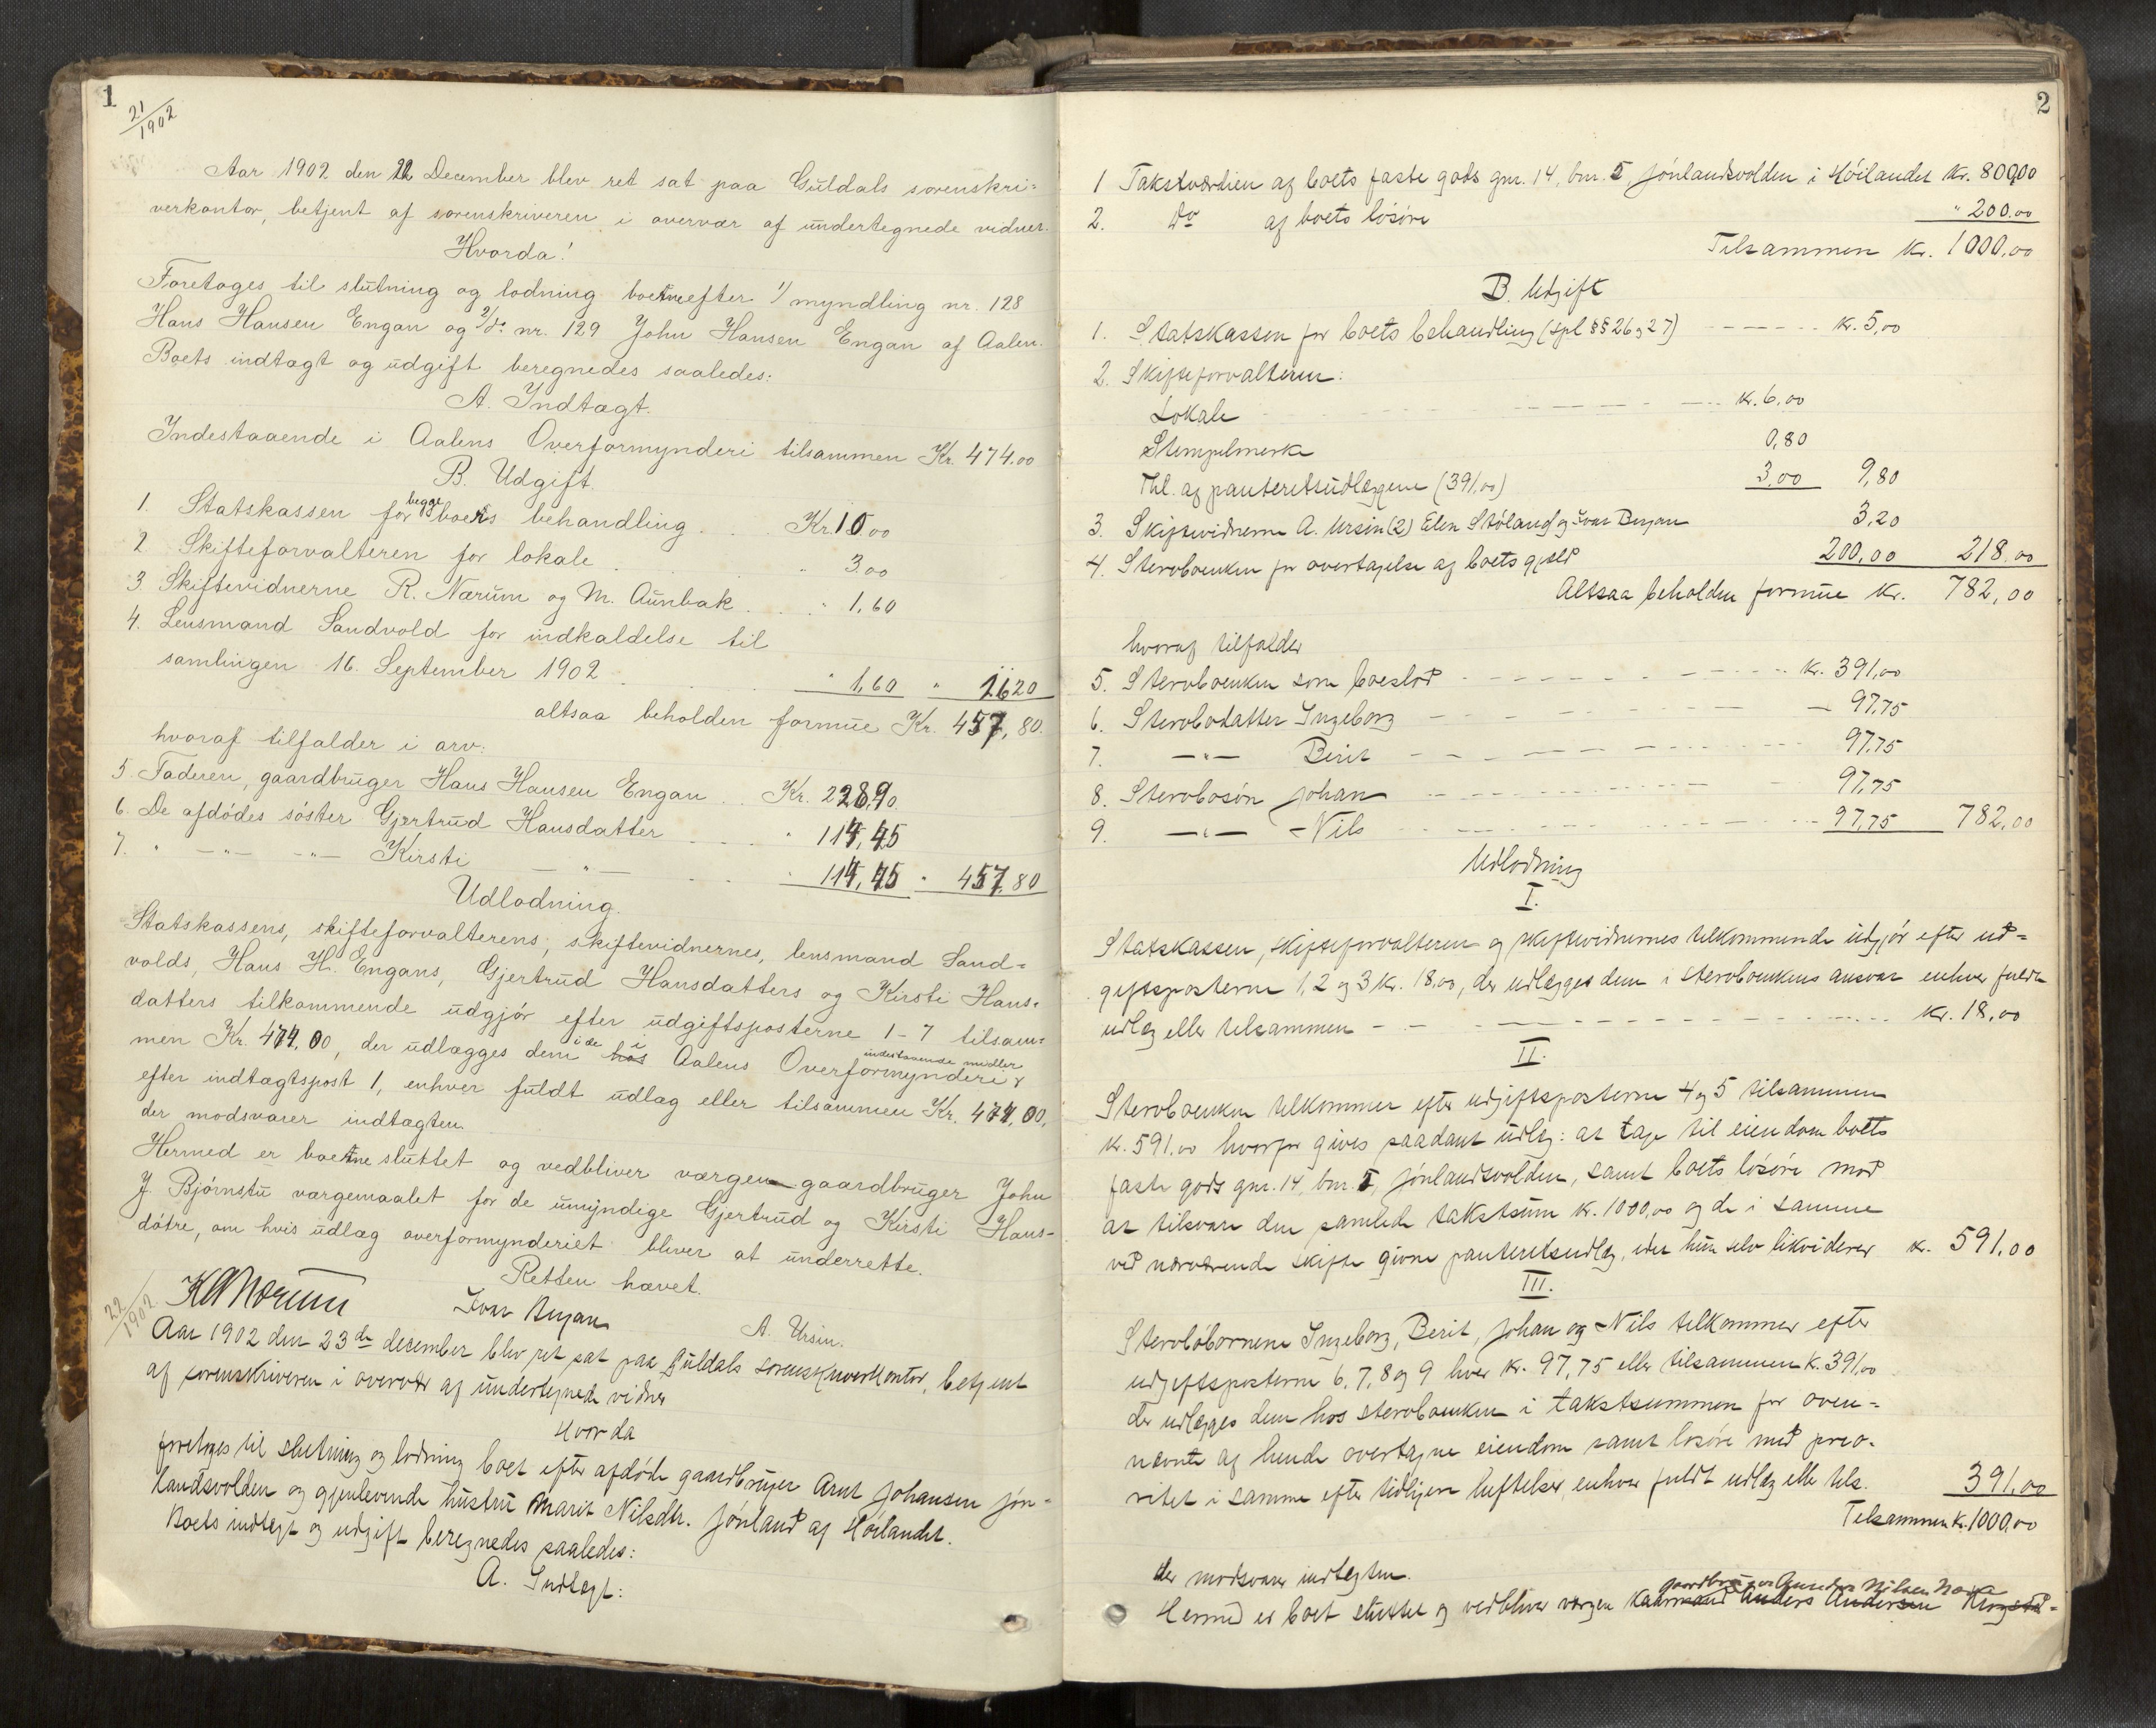 1
21/1902
Aar 1902 den 22 December blev ret sat paa Guldals sorenskri-
verkontor, betjent af sorenskriveren i overvær af undertegnede vidner.
Hvorda!
Foretoges til slutning og lodning boerne efter 1/ myndling nr. 128
Hans Hansen Engan og 2/ do nr. 129 John Hansen Engan af Aalen.
Boets indtægt og udgift beregnedes saaledes:
A. Indtægt.
Indestaaende i Aalens Overformynderi tilsammen Kr. 474.00
B. Udgift.
1. Statskassen for begge boers behandling . . . Kr. 10.00
2 Skifteforvalteren for lokale . . . " 3.00
3 Skiftevidnerne R. Nærum og M. Aunbak . . . " 1,60
4. Lensmand Sandvold for indkaldelse til
samlingen 16. September 1902 . . . " 1,60 " 16 20
altsaa beholden formue Kr. 457,80.
hvoraf tilfalder i arv:
5. Faderen, gaardbruger Hans Hansen Engan . . Kr. 228,90
6. De afdødes søster Gjertrud Hansdatter . . . " 114,45
7. " —"— —"— Kirsti —"— . . . " 114,45 " 457,80
Udlodning.
Statskassens, skifteforvalterens, skiftevidnernes, lensmand Sand-
volds, Hans H. Engans, Gjertrud Hansdatters og Kirsti Hans-
datters tilkommende udgjør efter udgiftsposterne 1-7 tilsam-
men Kr. 474.00, der udlægges dem i de hos i Aalens Overformynderi indestaaende midler
efter indtægtspost 1, enhver fuldt udlæg eller tilsammen Kr. 474,00,
der modsvarer indtægten.
Hermed er boerne sluttet og vedbliver værgen gaardbruger John
J. Bjørnstu værgemaalet for de umyndige Gjertrud og Kirsti Hans-
døtre, om hvis udlæg overformynderiet bliver at underrette.
Retten hævet.
KANærum
Ivar Bryan
A. Ursin.
22/1902
Aar 1902 den 23de december blev ret sat paa Guldals sorenskriverkontor, betjent
af sorenskriveren i overvær af undertegnede vidner
Hvorda
foretoges til slutning og lodning boet efter afdøde gaardbruger Arnt Johansen Jøn-
landsvolden og gjenlevende hustru Marit Nilsdtr. Jønland af Høilandet.
Boets indtægt og udgift beregnedes saaledes:
A. Indtægt:
2
1 Takstværdien af boets faste gods gnr. 14, bnr. 5, Jønlandsvolden i Høilandet Kr. 800,00
2. do af boets løsøre " 200.00
Tilsammen Kr. 1000,00
B. Udgift
1. Statskassen for boets behandling (spl §§ 26 og 27) - - - - - - kr. 5,00
2. Skifteforvalteren:
Lokale - - - - kr. 6,00
Stempelmerke 0,80
Thl. af panteretsudlæggene (391,00) 3,00 9,80
3. Skiftevidnerne A. Ursin (2) Elen Støland og Ivar Bryan 3,20
4. Stervboenken for overtagelse af boets gjeld 200,00 218.00
Altsaa beholden formue Kr. 782,00
hvoraf tilfalder
5. Stervboenken som boeslod - - - - - kr. 391,00
6. Stervbodatter Ingeborg - - - - - 97,75
7. —"— Berit - - - - - 97,75
8. Stervbosøn Johan - - - - - 97,75
9. —"— Nils - - - - - 97,75 782,00
Udlodning
I.
Statskassen, skifteforvalteren og skiftevidnernes tilkommende udgjør efter ud-
giftsposterne 1, 2 og 3 kr. 18,00, der udlægges dem i stervboenkens ansvar enhver fuldt
udlæg eller tilsammen - - - - - kr. 18,00
II.
Stervboenken tilkommer efter udgiftsposterne 4 og 5 tilsammen
kr. 591,00 hvorfor gives saadant udlæg: at tage til eiendom boets
faste gods gnr. 14, bnr. 5, Jønlandsvolden, samt boets løsøre mod
at tilsvare den samlede takstsum kr. 1000,00 og de i samme
ved nærværende skifte givne panteretsudlæg, idet hun selv likviderer kr. 591,00
III.
Stervbobørnene Ingeborg, Berit, Johan og Nils tilkommer efter
udgiftsposterne 6, 7, 8 og 9 hver kr. 97,75 eller tilsammen k. 391,00
der udlægges dem hos stervboenken i takstsummen for oven-
nævnte af hende overtagne eiendom samt løsøre med prio-
ritet i samme efter tidligere heftelser, enhver fuldt udlæg eller tils. 391,00
Tilsammen kr. 1000,00
der modsvarer indtægten.
gaardbruger Gunder Nilsen
Hermed er boet sluttet og vedbliver værgen kaarmand Anders Andersen